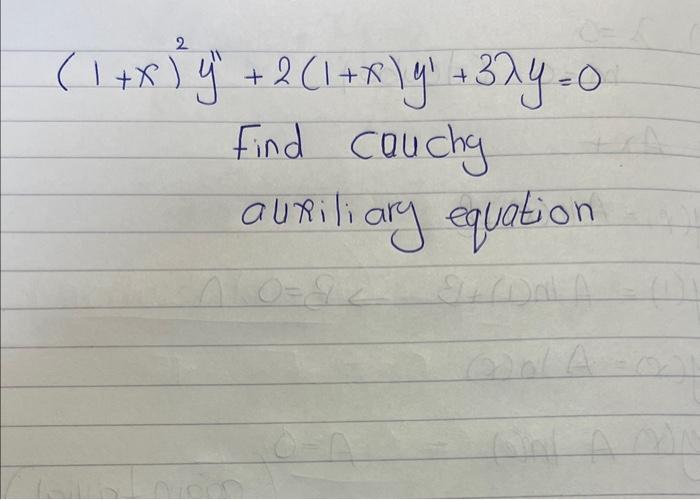 (1+x)²y" + 2(1+x)y' + 3λy = 0
Find cauchy
auxiliary equation